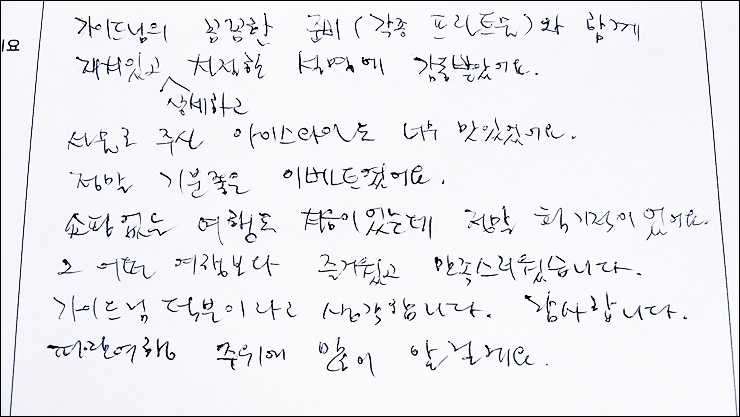 기요
가이드님의 꼼꼼한 준비(각종 프린트물)와 함께
재치있고 친절한 설명에 감동받았어요.
상세하고
선물로 주신 아이스와인도 너무 맛있었어요.
정말 기분좋은 이벤트였어요.
쇼핑없는 여행도 처음이었는데 정말 획기적이었어요.
그 어떤 여행보다 즐거웠고 만족스러웠습니다.
가이드님 덕분이라고 생각합니다. 감사합니다.
파란여행 주위에 많이 알릴게요.